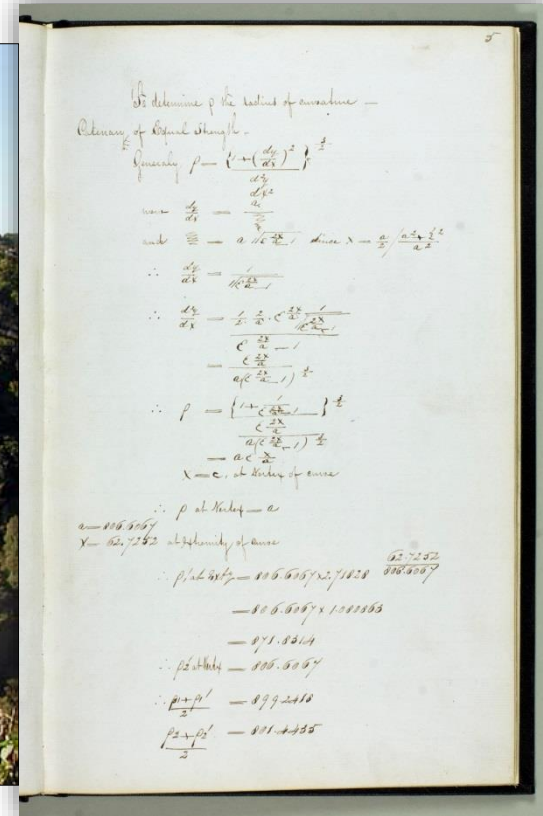 5
To determine ρ the radius of curvature —
Catenary of Equal Strength —
Generally ρ = {1 + (dy/dx)²}^3/2 / d²y/dx²
now dy/dx = a/z
and z = a √(ε^2x/a − 1) since x = a/2 l (a² + z²)/a²
∴ dy/dx = 1/√(ε^2x/a − 1)
∴ d²y/dx = 1/2 · 2/a · ε^2x/a · 1/√(ε^2x/a − 1) / ε^2x/a − 1
= ε^2x/a / a(ε^2x/a − 1)^3/2
∴ ρ = {1 + 1/(ε^2x/a − 1)}^3/2 / ε^2x/a / a(ε^2x/a − 1)^3/2
= a ε^x/a
x = 0, at Vertex of curve
∴ ρ at Vertex = a
a = 806.6067
x = 62.7252 at Extremity of curve
∴ ρ' at Exty = 806.6067 × 2.71828 ^62.7252/806.6067
= 806.6067 × 1.080863
= 871.8314
∴ ρ2' at Vertex = 806.6067
∴ (ρ1 + ρ1')/2 = 899.2418
(ρ2 + ρ2')/2 = 801.4435